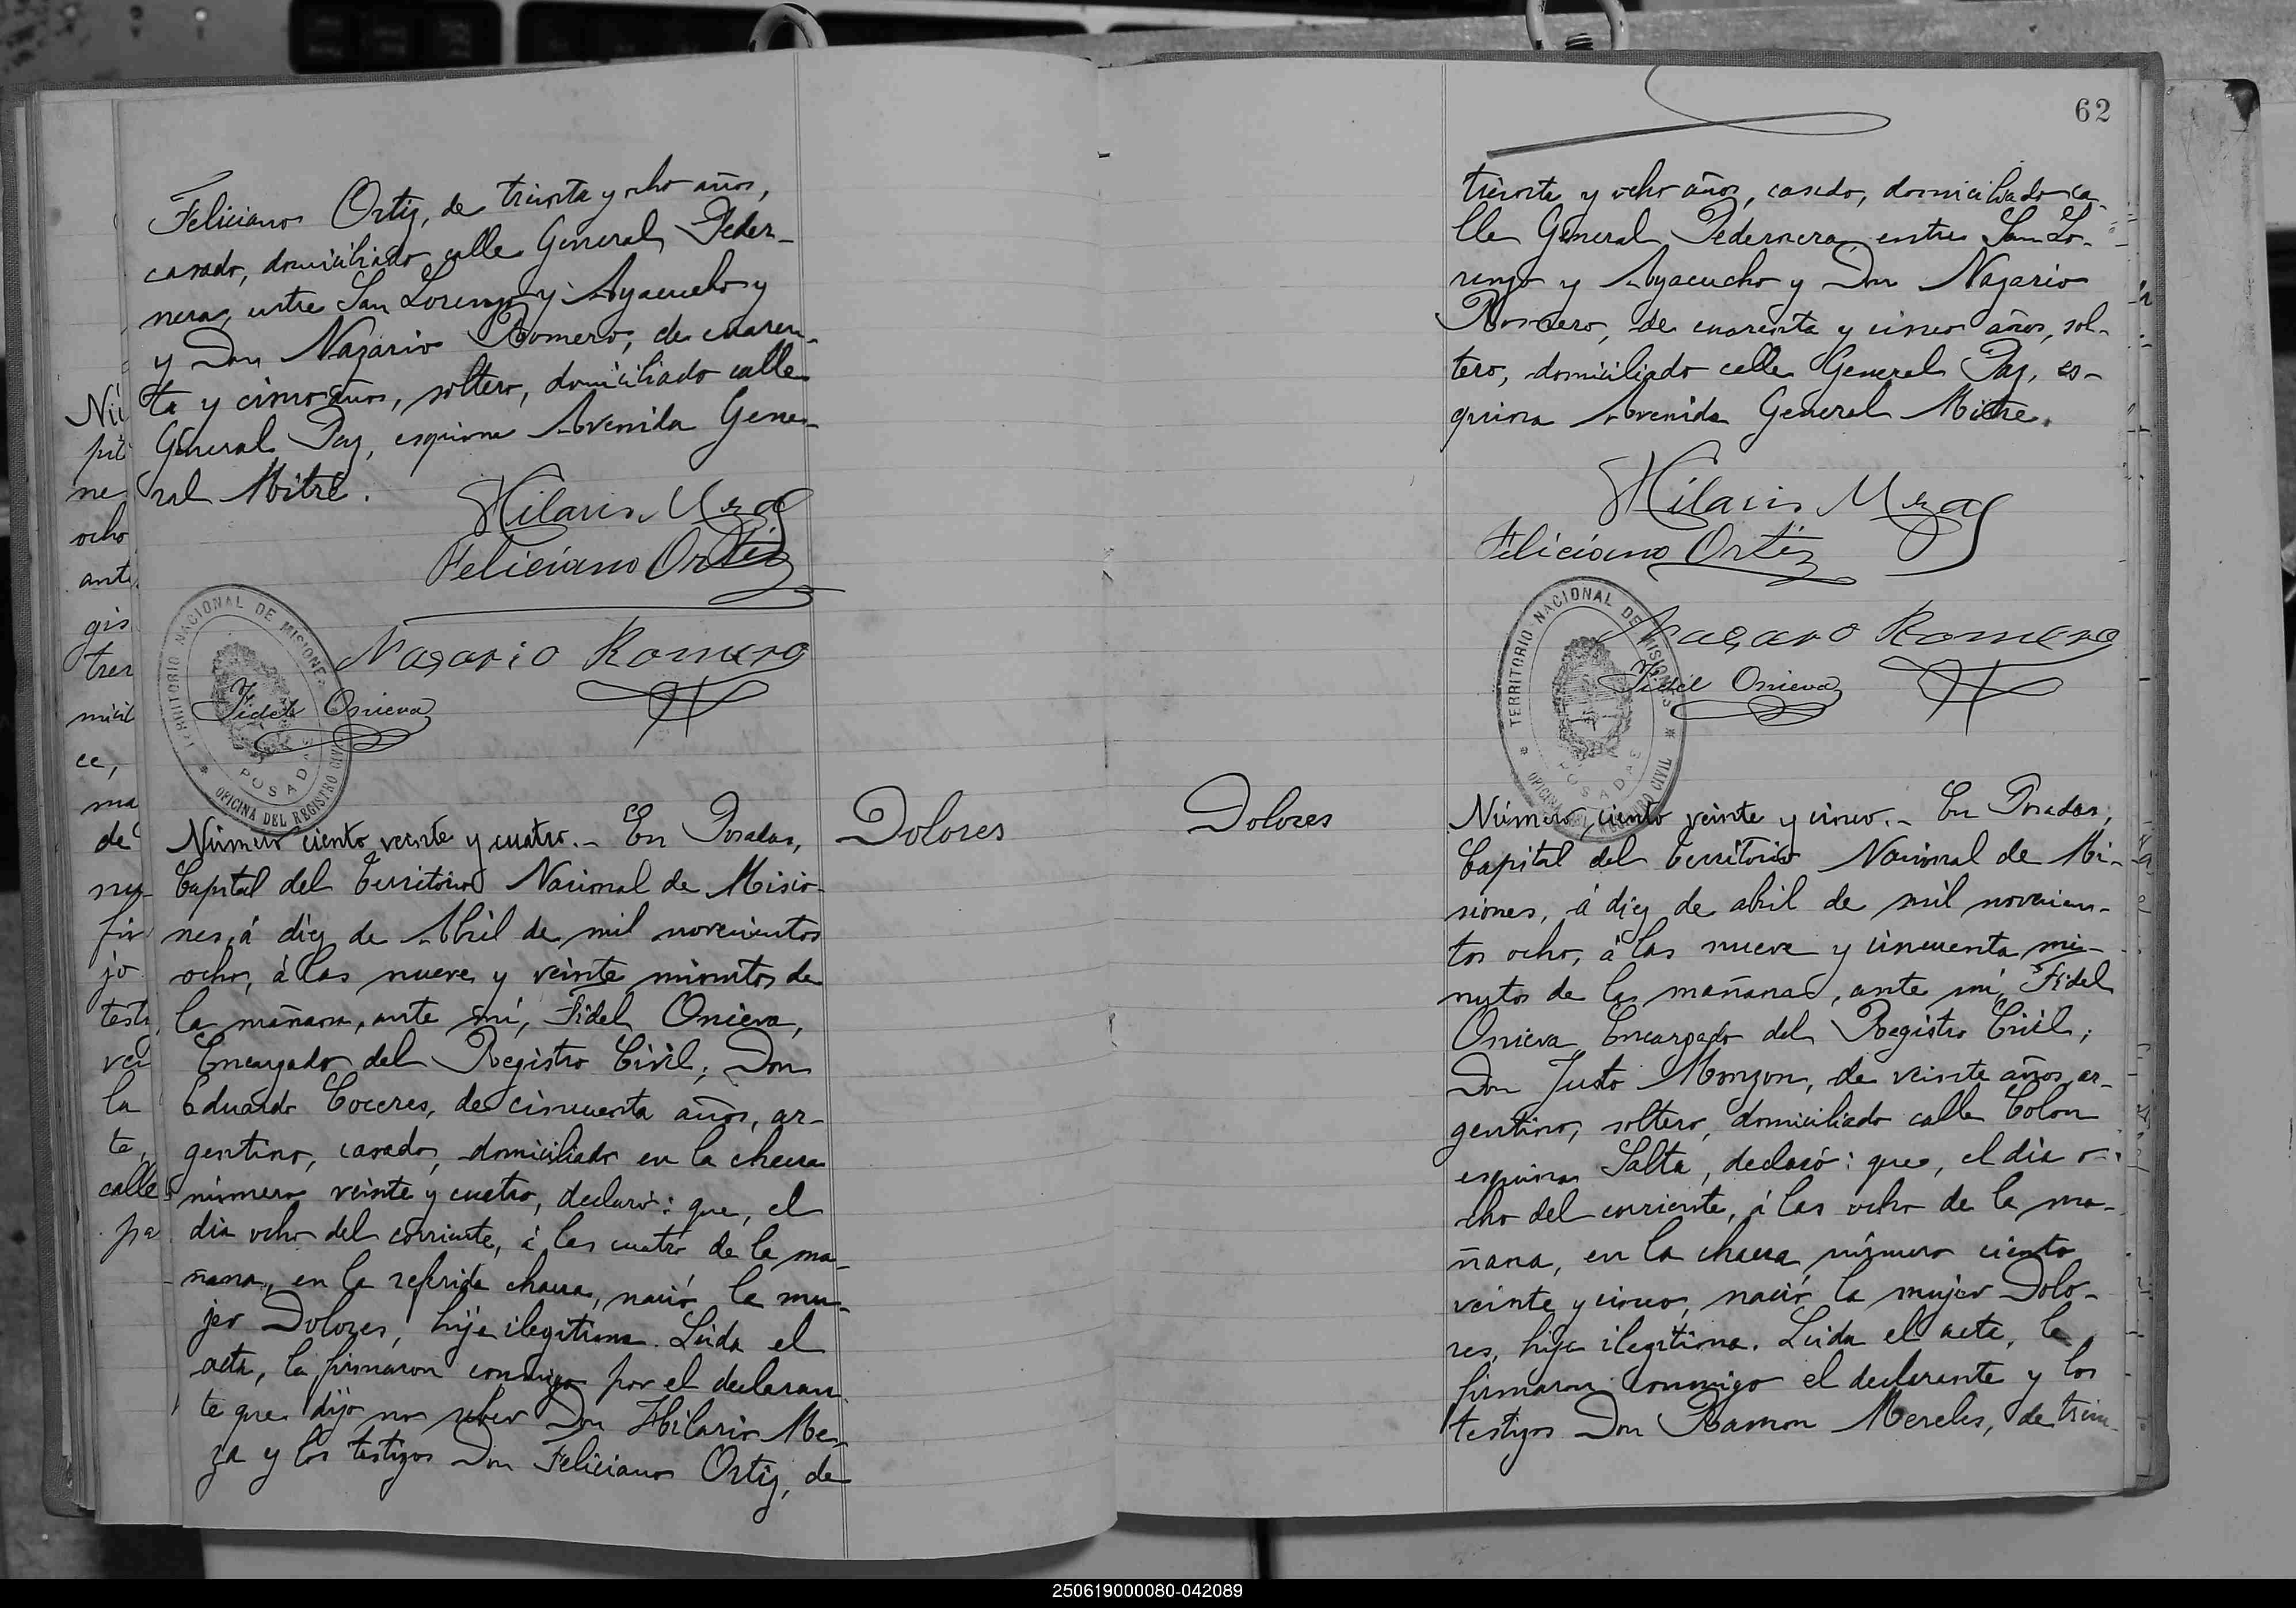 Feliciano Ortiz, de treinta y ocho años,
casado, domiciliado calle General Peder-
nera, entre San Lorenzo y Ayacucho y
y Don Nazario Romero, de cuaren-
ta y cinco años, soltero, domiciliado calle
General Paz, esquina Avenida Gene-
ral Mitre.
Hilario Meza
Feliciano Ortiz
Nazario Romero
Fidel Onieva
TERRITORIO NACIONAL DE MISIONES
POSADAS
OFICINA DEL REGISTRO CIVIL
Dolores
Número ciento veinte y cuatro.- En Posadas,
Capital del Territorio Nacional de Misio-
nes, á diez de Abril de mil novecientos
ocho, á las nueve y veinte minutos de
la mañana, ante mí, Fidel Onieva,
Encargado del Registro Civil; Don
Eduardo Coceres, de cincuenta años, ar-
gentino, casado, domiciliado en la chacra
número veinte y cuatro, declaró: que, el
dia ocho del corriente, á las cuatro de la ma-
ñana, en la referida chacra, nació la mu-
jer Dolores, hija ilegitima. Leida el
acta, la firmaron conmigo por el declaran
te que dijo no saber Don Hilario Me-
za y los testigos Don Feliciano Ortiz, de
Nú
pit
ne
ocho
ante
gis
trer
micil
ce,
ma
de
ny-
fir
jo
testi
vei
la
te,
calle
pa
62
treinta y ocho años, casado, domiciliado ca-
lle General Pedernera, entre San Lo-
renzo y Ayacucho y Don Nazario
Romero, de cuarenta y cinco años, sol-
tero, domiciliado calle General Paz, es-
quina Avenida General Mitre.
Hilario Meza
Feliciano Ortiz
Nazaro Romero
Fidel Onieva
TERRITORIO NACIONAL DE MISIONES
POSADAS
OFICINA DEL REGISTRO CIVIL
Dolores
Número ciento veinte y cinco.- En Posadas,
Capital del Territorio Nacional de Mi-
siones, á diez de abril de mil novecien-
tos ocho, á las nueve y cincuenta mi-
nutos de la mañana, ante mí, Fidel
Onieva Encargado del Registro Civil;
Don Justo Monzon, de veinte años, ar-
gentino, soltero, domiciliado calle Colon
esquina Salta, declaró: que, el dia o-
cho del corriente, á las ocho de la ma-
ñana, en la chacra número ciento
veinte y cinco, nació la mujer Dolo-
res, hija ilegitima. Leida el acta, la
firmaron conmigo el declarante y los
testigos Don Ramon Mereles, de trein-
250619000080-042089